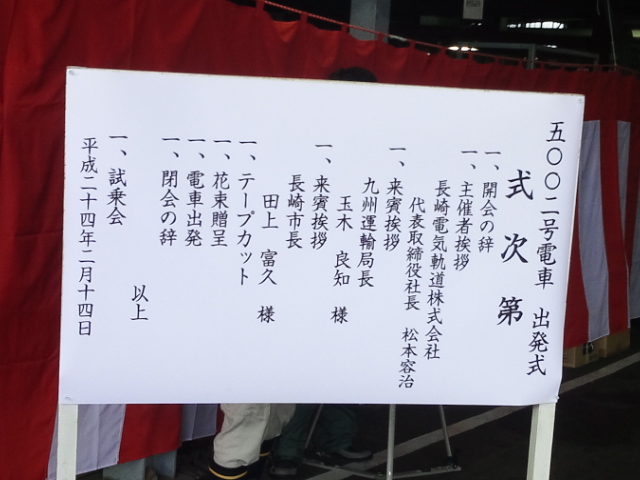 五〇〇二号電車　出発式
式次第
一、開会の辞
一、主催者挨拶
長崎電気軌道株式会社
代表取締役社長　松本容治
一、来賓挨拶
九州運輸局長
玉木　良知　様
一、来賓挨拶
長崎市長
田上　富久　様
一、テープカット
一、花束贈呈
一、電車出発
一、閉会の辞
以上
一、試乗会
平成二十四年二月十四日